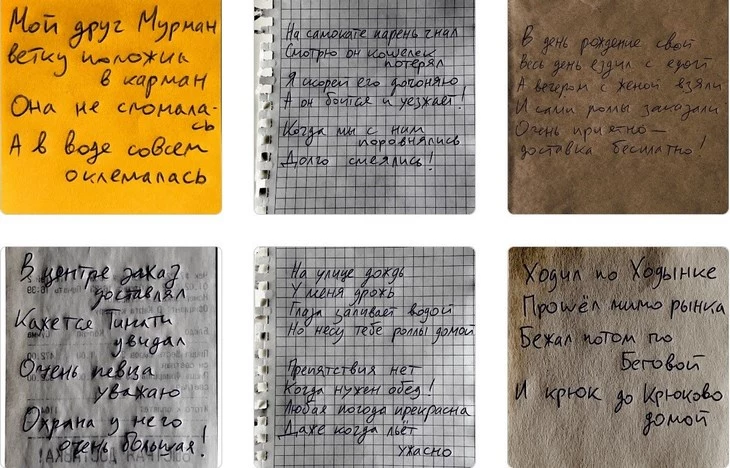 Мой друг Мурман
ветку положил
в карман
Она не сломала-
сь
А в воде совсем
оклемалась
На самокате парень гнал
Смотрю он кошелек
потерял
Я скорей его догоняю
А он боится и уезжает!
Когда мы с ним
поровнялись
Долго смеялись!
В день рождение свой
Весь день ездил с едой
А вечером с женой взяли
И сами роллы заказали
Очень приятно—
доставка бесплатно!
В центре заказ
доставлял
Кажется Тимати
увидал
Очень певца
уважаю
Охрана у него
очень большая!
На улице дождь
У меня дрожь
Глаза заливает водой
Но несу тебе роллы домой
Препятствия нет
Когда нужен обед!
Любая погода прекрасна
Даже когда льёт
ужасно
Ходил по Ходынке
Прошёл мимо рынка
Бежал потом по
Беговой
И крюк до Крюково
домой